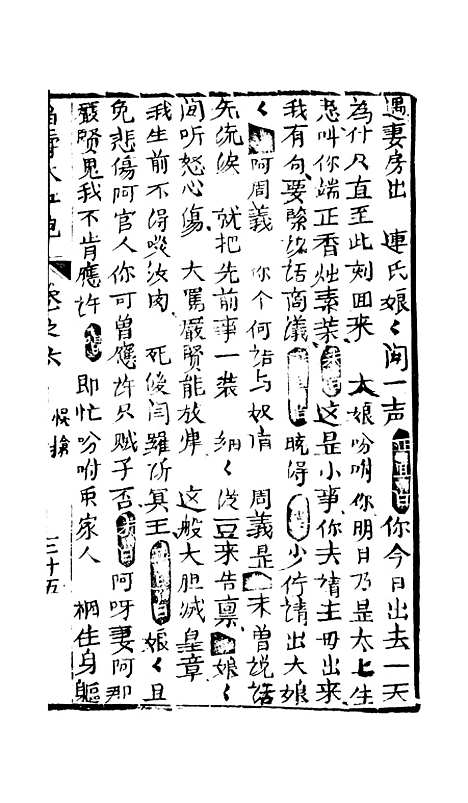 遇妻房出 連氏娘〻闻一声 正旦白 你今日出去一天
為什只直至此刻回来 太娘吩咐你明日乃是太上生
忌叫你端正香烛素菜 末白 这是小事你去請主母出来
我有句要緊的話商議 晓得 少停請出大娘
〻 阿周義 你个何話与奴情 周義是 未曾説話
先流淚 就把先前事一裝 細〻從豆来告禀 娘〻
闻听怒心傷 大罵嚴賢能放肆 这般大胆滅皇章
我生前不得啖汝肉 死後闫羅所冥王 正旦白 娘〻且
免悲傷阿官人你可曾應許只賊子否 末白 阿呀妻阿那
嚴賢鬼我不肯應許 唱 即忙吩咐再家人 綑住身軀
卷之六 三十五